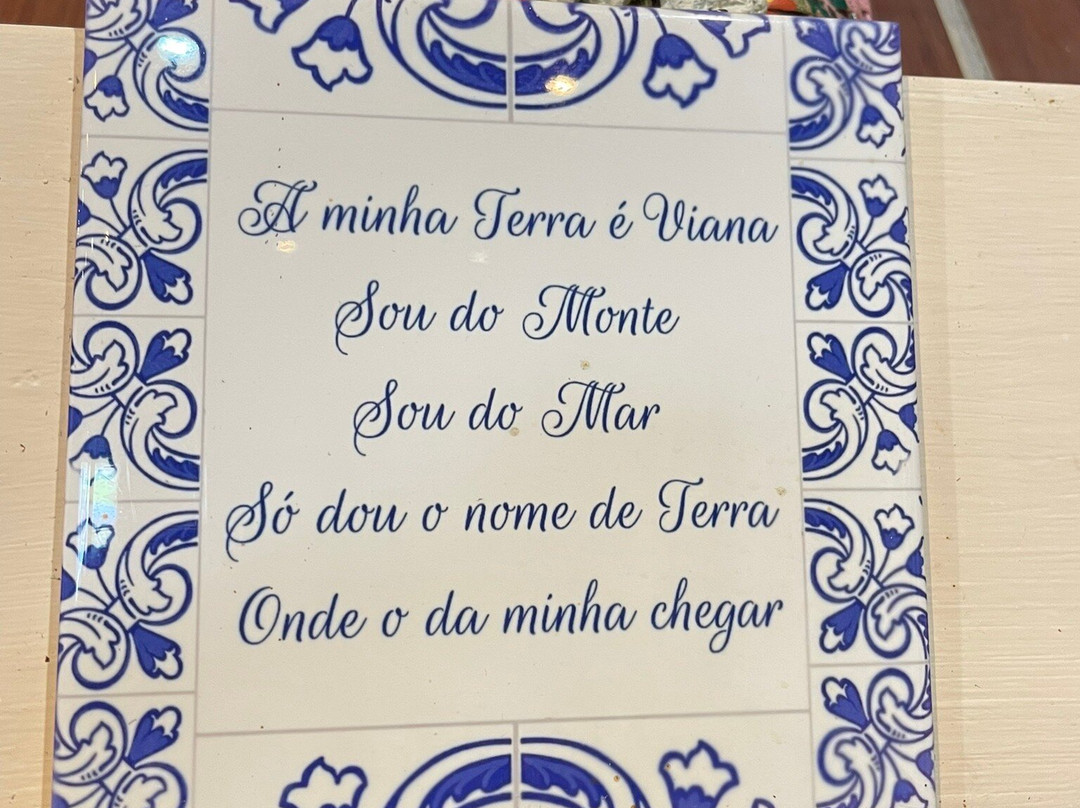 A minha Terra é Viana
Sou do Monte
Sou do Mar
Só dou o nome de Terra
Onde o da minha chegar